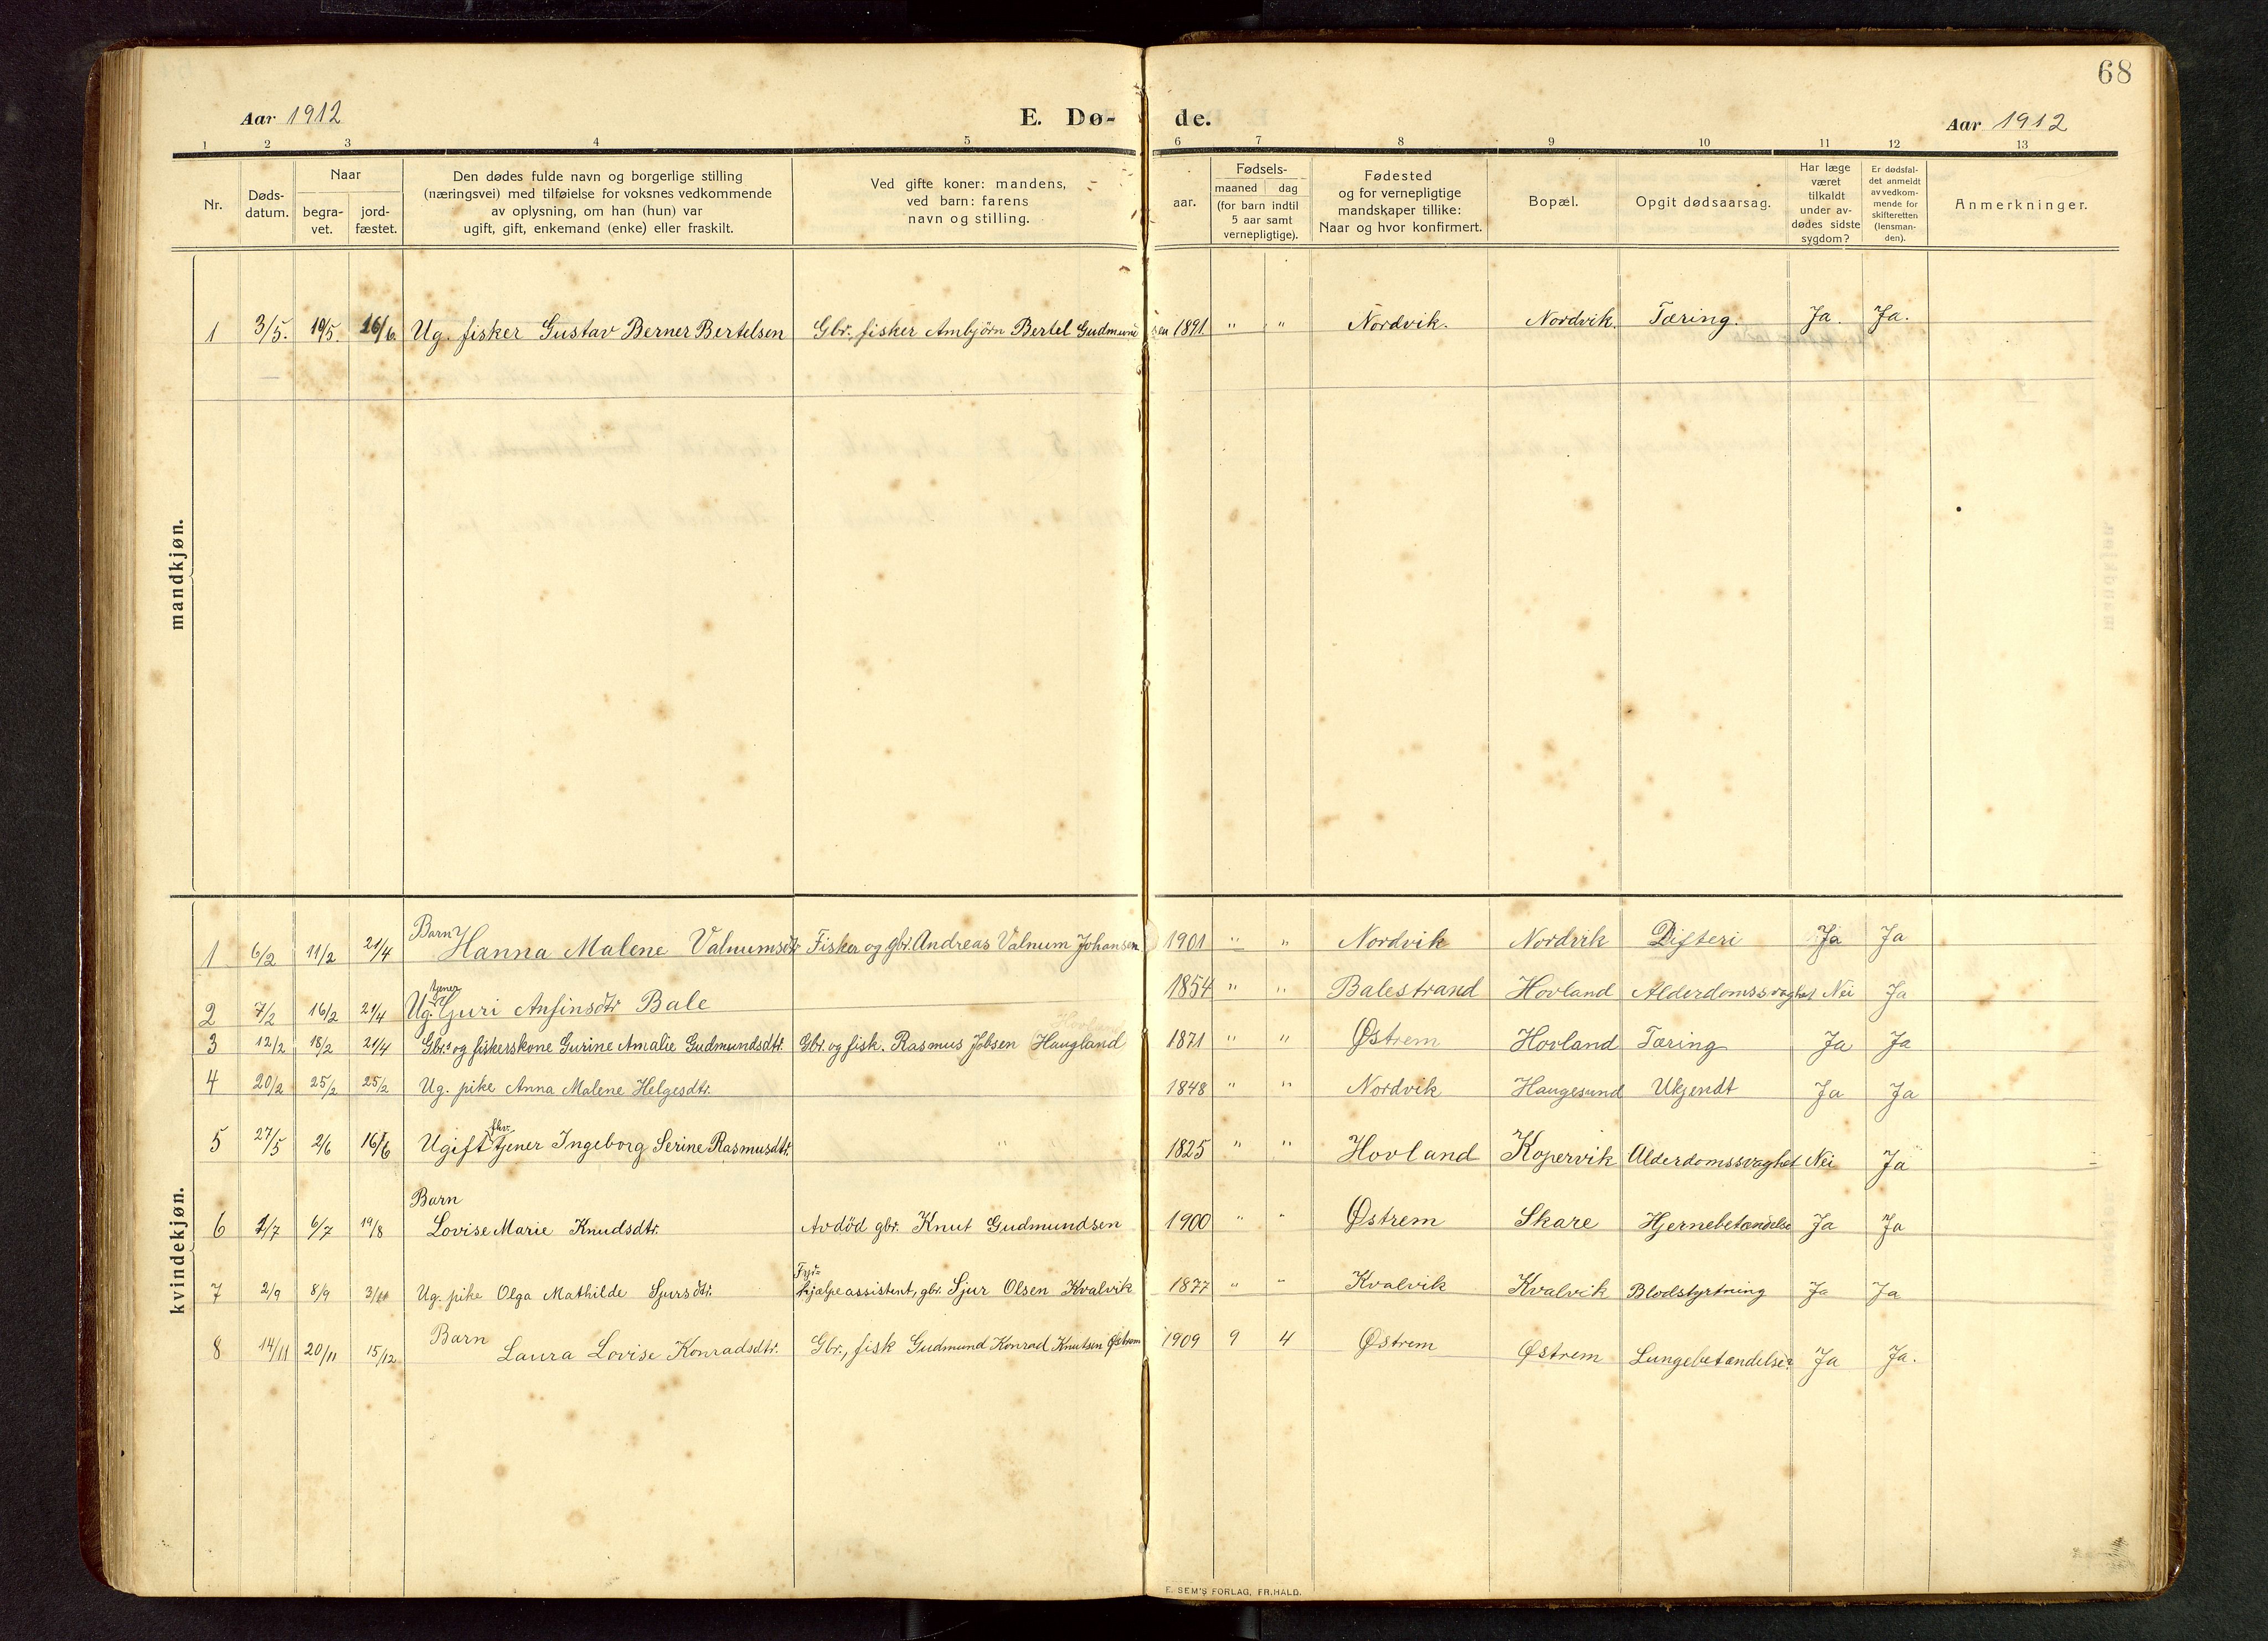 68
Aar 1912 E. Dø- de. Aar 1912
1 2 3 4 5 6 7 8 9 10 11 12 13
Nr.
Døds-
datum.
Naar
begra-
vet.
jord-
fæstet.
Den dødes fulde navn og borgerlige stilling
(næringsvei) med tilføielse for voksnes vedkommende
av oplysning, om han (hun) var
ugift, gift, enkemand (enke) eller fraskilt.
Ved gifte koner: mandens,
ved barn: farens
navn og stilling.
Fødsels-
aar.
maaned dag
(for barn indtil
5 aar samt
vernepligtige).
Fødested
og for vernepligtige
mandskaper tillike:
Naar og hvor konfirmert.
Bopæl.
Opgit dødsaarsag.
Har læge
været
tilkaldt
under av-
dødes sidste
sygdom?
Er dødsfal-
det anmeldt
av vedkom-
mende for
skifteretten
(lensman-
den).
Anmerkninger.
mandkjøn.
1 3/5. 19/5. 16/6. Ug. fisker Gustav Berner Bertelsen Gbr., fisker Ambjörn Bertel Gudmundsen 1891 " " Nordvik. Nordvik. Tæring. Ja. Ja.
kvindekjøn.
1 6/2 11/2 21/4 Barn Hanna Malene Valnumsdtr Fisker og gbr. Andreas Valnum Johansen 1901 " " Nordvik Nordvik Difteri Ja Ja
tjener
2 7/2 16/2 21/4 Ug. Guri Anfinsdtr Bale 1854 " " Balestrand Hovland Alderdomssvaghet Nei Ja
3 12/2 18/2 21/4 Gbr.s og fiskerskone Gurine Amalie Gudmundsdtr. Gbr. og fisk. Rasmus Jobsen Haugland 1871 " " Østrem Hovland Tæring Ja Ja
4 20/2 25/2 25/2 Ug. pike Anna Malene Helgesdtr. 1848 " " Nordvik Haugesund Ukjendt Ja Ja
fhv.
5 27/5 2/6 16/6 Ugift tjener Ingeborg Serine Rasmusdtr. 1825 " " Hovland Kopervik Alderdomssvaghet Nei Ja
Barn
6 2/7 6/7 19/8 Lovise Marie Knudsdtr. Avdöd gbr. Knut Gudmundsen 1900 " " Østrem Skare Hjernebetændelse Ja Ja
Fyr-
7 2/9 8/9 Ug. pike Olga Mathilde Sjursdtr. hjælpeassistent, gbr. Sjur Olsen Kvalvik 1877 " " Kvalvik Kvalvik Blodstyrtning Ja Ja
8 14/11 20/11 15/12 Barn Laura Lovise Konradsdtr. Gbr., fisk Gudmund Konrad Knutsen Østrem 1909 9 4 Østrem Østrem Lungebetændelse Ja Ja.
E. SEM'S FORLAG, FR.HALD.